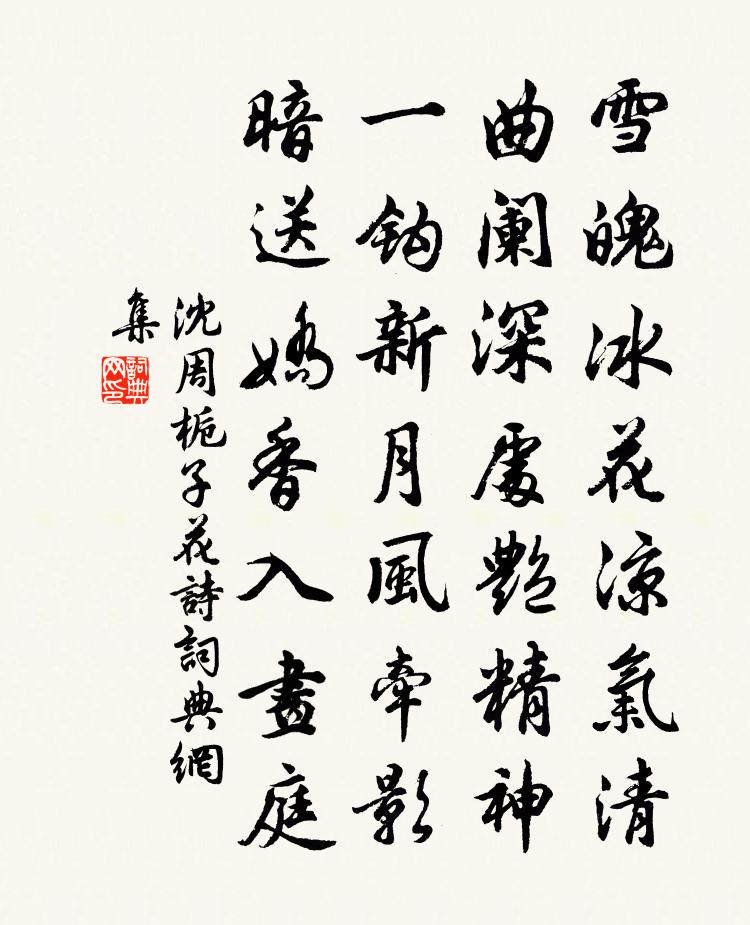 雪魄冰花涼氣清
曲闌深處艷精神
一鈎新月風牽影
暗送嬌香入畫庭
沈周梔子花詩詞典網
集
詞典網印